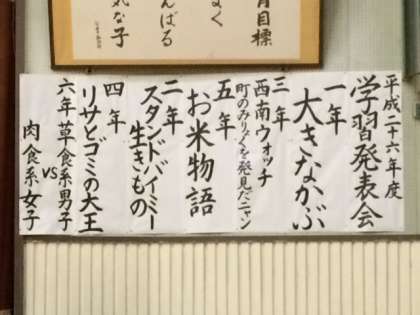 平成二十六年度
学習発表会
一年
大きなかぶ
三年
西南ウォッチ
町のみりょくを発見だニャン
五年
お米物語
二年
スタンドバイミー
生きもの
四年
リサとゴミの大王
六年
草食系男子
VS
肉食系女子
目標
よく
んばる
気な子